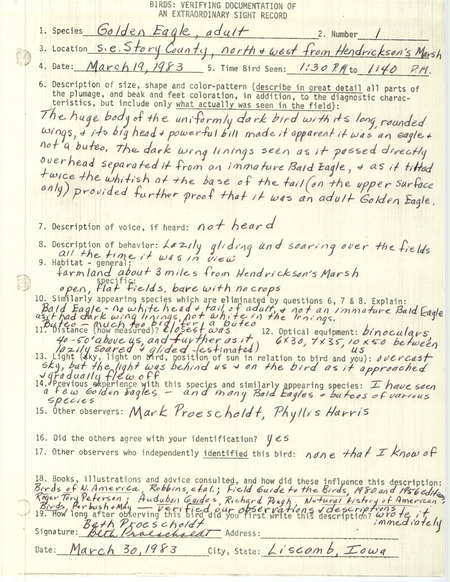 BIRDS: VERIFYING DOCUMENTATION OF
AN EXTRAORDINARY SIGHT RECORD
1. Species Golden Eagle, adult 2. Number 1
3. Location s.e. Story County, north & west from Hendrickson's Marsh
4. Date: March 19, 1983 5. Time Bird Seen: 11:30 P.M. to 1:40 P.M.
6. Description of size, shape and color-pattern (describe in great detail all parts of
the plumage, and beak and feet coloration, in addition, to the diagnostic charac-
teristics, but include only what actually was seen in the field):
The huge body of the uniformly dark bird with its long, rounded
wings, & its big head & powerful bill made it apparent it was an eagle &
not a buteo. The dark wing linings seen as it passed directly
overhead separated it from an immature Bald Eagle, & as it tilted
twice the whitish at the base of the tail (on the upper surface
only) provided further proof that it was an adult Golden Eagle.
7. Description of voice, if heard: not heard
8. Description of behavior: Lazily gliding and soaring over the fields
all the time it was in view
9. Habitat - general:
farmland about 3 miles from Hendrickson's Marsh
specific:
open, flat fields, bare with no crops
10. Similarly appearing species which are eliminated by questions 6, 7 & 8. Explain:
Bald Eagle - no white head & tail of adult, & not an immature Bald Eagle
as it had dark wing linings, not white in the linings.
Buteo - much too big for a buteo
11. Distance (how measured)? closest was 12. Optical equipment: binoculars,
40-50' above us, and further as it 6x30, 7x35, 10x50 between
lazily soared & glided (estimated) us
13. Light (sky, light on bird, position of sun in relation to bird and you): overcast
sky, but the light was behind us & on the bird as it approached
& gradually flew off
14. Previous experience with this species and similarly appearing species: I have seen
a few Golden Eagles - and many Bald Eagles & buteos of various
species
15. Other observers: Mark Proescholdt, Phyllis Harris
16. Did the others agree with your identification? yes
17. Other observers who independently identified this bird: none that I know of
18. Books, illustrations and advice consulted, and how did these influence this description:
Birds of N. America, Robbins, et al.; Field Guide to the Birds, 1980 and 1956 editions,
Roger Tory Peterson; Audubon Guides, Richard Pough, Natural History of American
Birds, Forbush & May - verified our observations & descriptions
19. How long after observing this bird did you first write this description? wrote it
immediately
Beth Proescholdt
Signature: Beth Proescholdt Address:
Date: March 30, 1983 City, State: Liscomb, Iowa